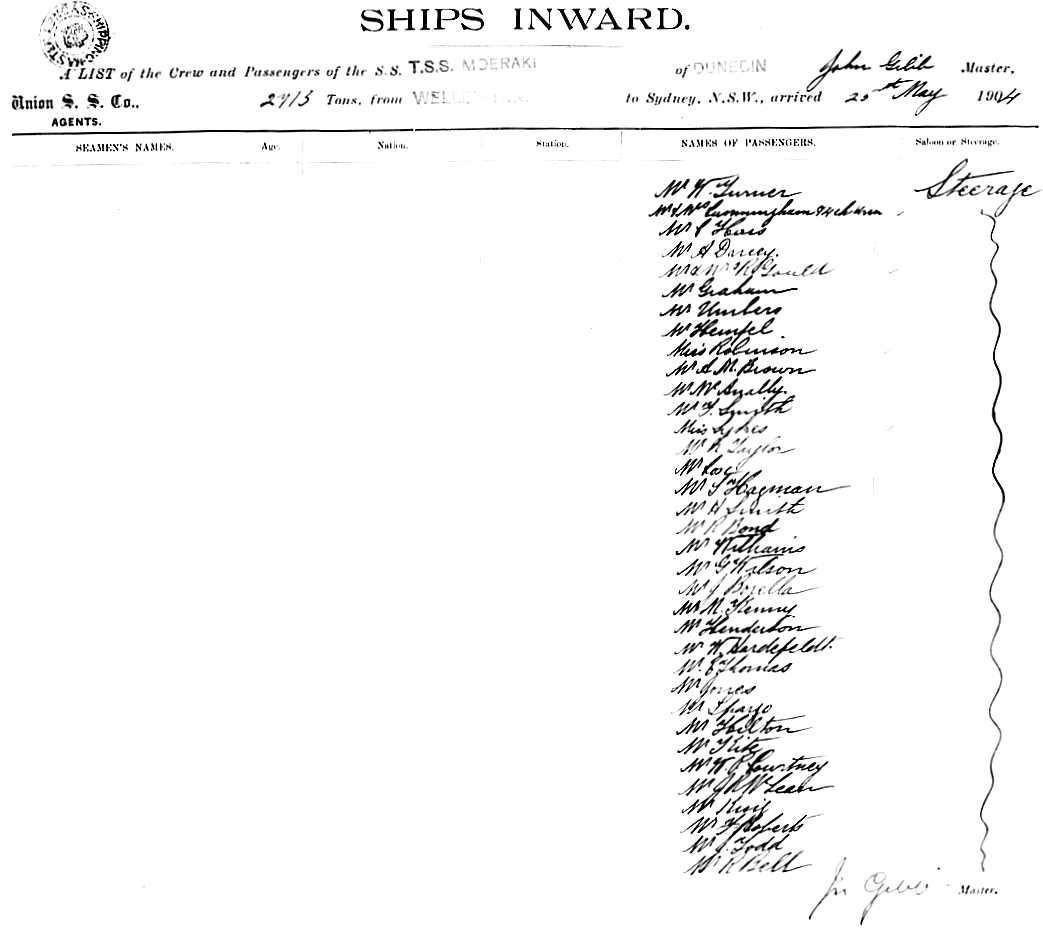 SHIPS INWARD.
A LIST of the Crew and Passengers of the S.S. T.S.S. MOERAKI of DUNEDIN John Gibb Master,
Union S. S. Co., 2715 Tons, from to Sydney, N.S.W., arrived 20th May 1904
AGENTS.
SEAMEN'S NAMES. Age. Nation. Station. NAMES OF PASSENGERS. Saloon or Steerage.
Mr W. Turner Steerage
Mr & Mrs Cunningham & 4 children
Mr S
Mr A Darcey.
Mr & Mrs R Gould
Mr Graham
Mr Umbers
Mr Hempel
Miss Robinson
Mr A. M. Brown
Mr McAnally.
Mr F. Smith
Miss Sykes
Mr R Taylor
Mr
Mr S Hagman
Mr H Smith
Mr R Bond
Mr Williams
Mr G Watson
Mr J Borella
Mr M. Kenny
Mr Henderson
Mr W. Hardefeldt.
Mr. E Thomas
Mr Jones
Mr Spargo
Mr Hilton
Mr Kite
Mr W. P. Courtney
Mr J R McLean
Mr King
Mr F Roberts
Mr J. Todd
Mr R Bell
Jn Gibb Master.